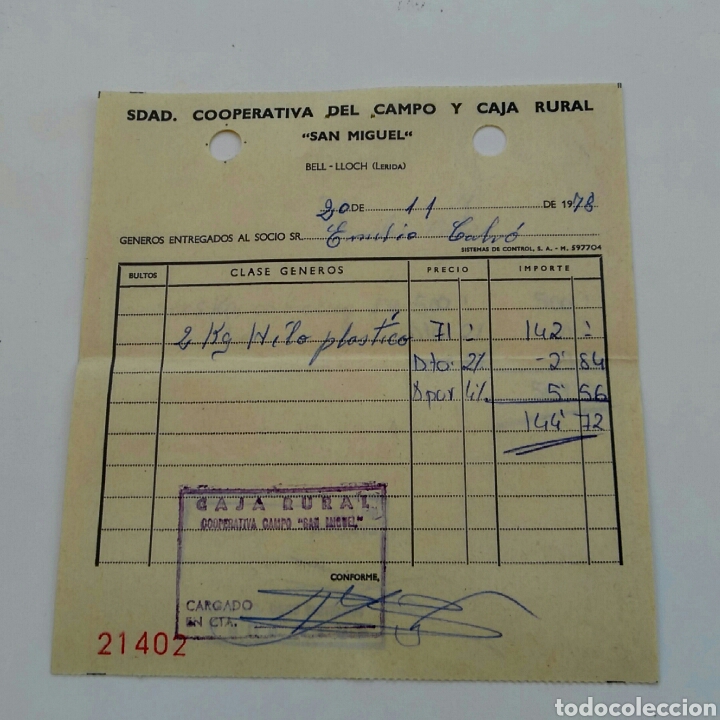 SDAD. COOPERATIVA DEL CAMPO Y CAJA RURAL
"SAN MIGUEL"
BELL-LLOCH (LERIDA)
20 DE 11 DE 1978
GENEROS ENTREGADOS AL SOCIO SR. Emilio Calvó
SISTEMAS DE CONTROL, S. A. - M. 597704
BULTOS CLASE GENEROS PRECIO IMPORTE
2 Kg Hilo plastico 71 - 142 -
Dto. 2% -2' 84
4% 5' 56
144' 72
CAJA RURAL
COOPERATIVA CAMPO "SAN MIGUEL"
CONFORME,
CARGADO
EN CTA.
21402
todocoleccion